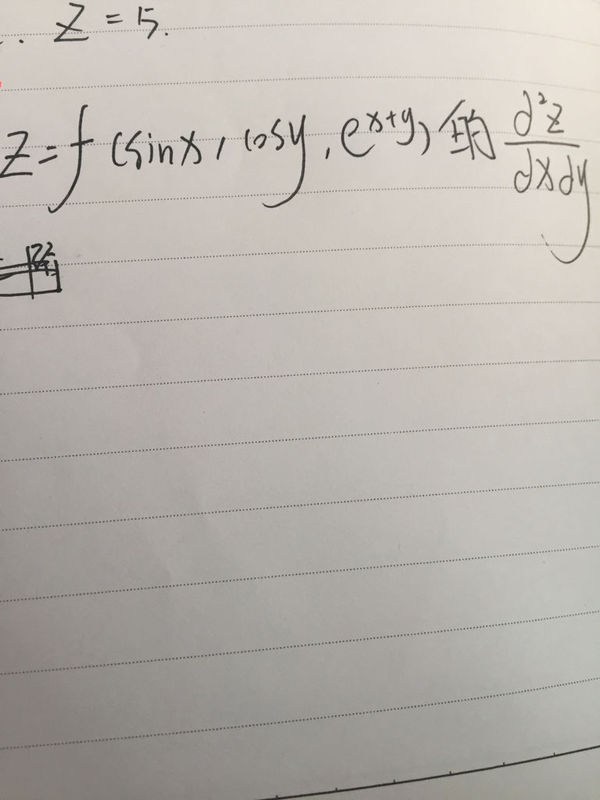 . Z = 5.
Z = f(sinx, cosy, e^{x+y}) 的 \frac{d^2z}{dxdy}